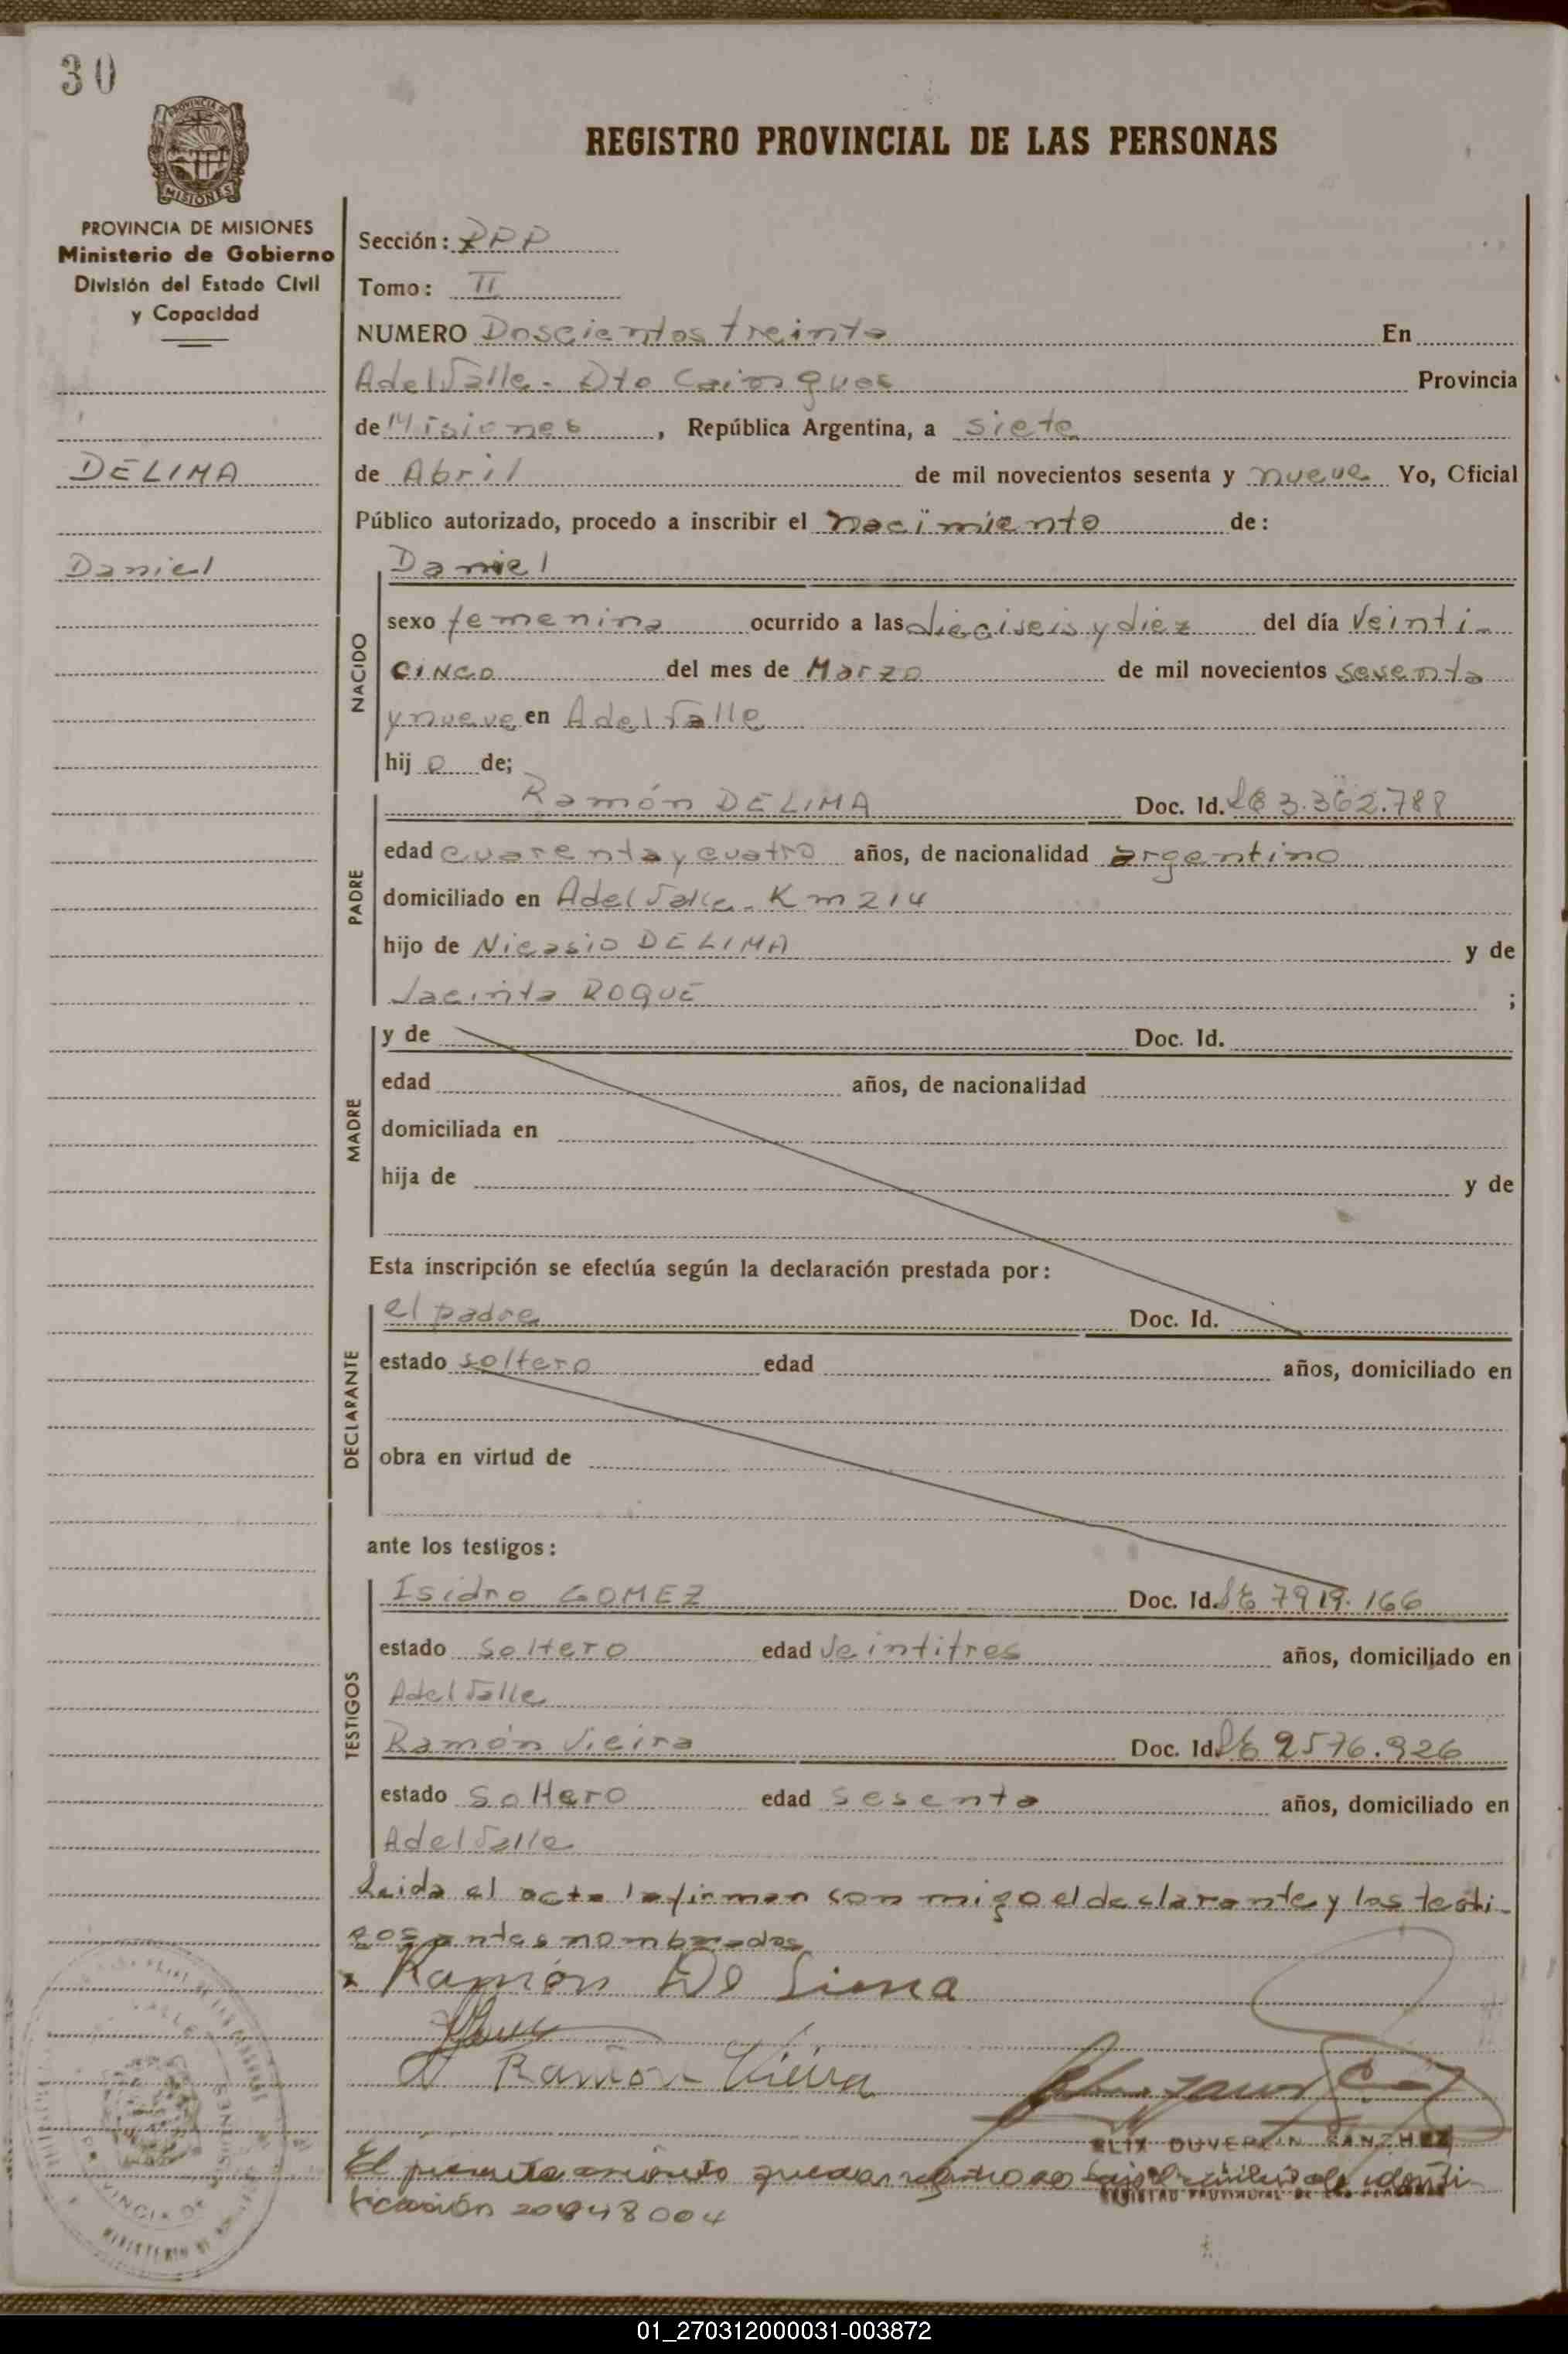 30
PROVINCIA DE
MISIONES
REGISTRO PROVINCIAL DE LAS PERSONAS
PROVINCIA DE MISIONES
Ministerio de Gobierno
División del Estado Civil
y Capacidad
DELIMA
Daniel
Sección: RPP
Tomo: II
NUMERO Doscientos treinta En
Adel Valle. Dto Cainguas Provincia
de Misiones, República Argentina, a siete
de Abril de mil novecientos sesenta y nueve Yo, Oficial
Público autorizado, procedo a inscribir el nacimiento de:
NACIDO
Daniel
sexo femenino ocurrido a las dieciseis y diez del día Veinti
cinco del mes de Marzo de mil novecientos sesenta
y nueve en Adel Valle
hij o de;
PADRE
Ramón DELIMA Doc. Id. LE 3.362.788
edad cuarenta y cuatro años, de nacionalidad argentino
domiciliado en Adel Valle. Km 214
hijo de Nicasio DELIMA y de
Jacinta ROQUE ;
MADRE
y de Doc. Id.
edad años, de nacionalidad
domiciliada en
hija de y de
Esta inscripción se efectúa según la declaración prestada por:
DECLARANTE
el padre Doc. Id.
estado soltero edad años, domiciliado en
obra en virtud de
ante los testigos:
TESTIGOS
Isidro GOMEZ Doc. Id. LE 7919.166
estado soltero edad Veintitres años, domiciliado en
Adel Valle
Ramón Vieira Doc. Id. LE 2576.926
estado soltero edad sesenta años, domiciliado en
Adel Valle
Leida el acta la firman con migo el declarante y los testi-
gos antes nombrados
x Ramón De Lima
Ramón Vieira
ELIX DUVERLIN SANZHEZ
REGISTRO PROVINCIAL DE LAS PERSONAS
El presente queda registrado bajo de identi-
ficación 20848004
01_270312000031-003872